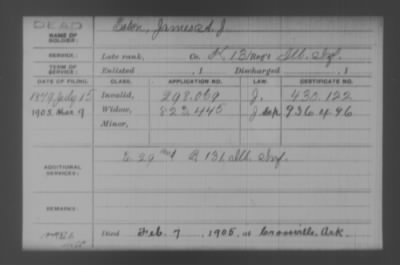 DEAD
NAME OF SOLDIER: Eaton, James A. J.
SERVICE: Late rank, Co. K 13 Reg't Ill. Inf.
TERM OF SERVICE: Enlisted , 1 Discharged , 1
DATE OF FILING. CLASS. APPLICATION NO. LAW. CERTIFICATE NO.
1879 July 15 Invalid, 298.069 J. 430.122
1905. Mar 9 Widow, 823445 936496
Minor,
ADDITIONAL SERVICES: E 29 and A 131 Ill. Inf.
REMARKS:
Died Feb. 7 , 1905, at Crossville, Ark.